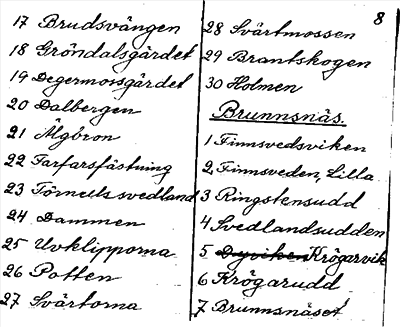 8
17 Brudsvängen
18 Gröndalsgärdet
19 Degermossgärdet
20 Dalbergen
21 Älgbron
22 Farfarsfästning
23 Törnells svedland
24 Dammen
25 Uvklipporna
26 Potten
27 Svärtorna
28 Svärtmossen
29 Brantskogen
30 Holmen
Brunnsnäs.
1 Finnsvedsviken
2 Finnsveden, Lilla
3 Ringstensudd
4 Svedlandsudden
5 Dyviken Krögarvik
6 Krögarudd
7 Brunnsnäset